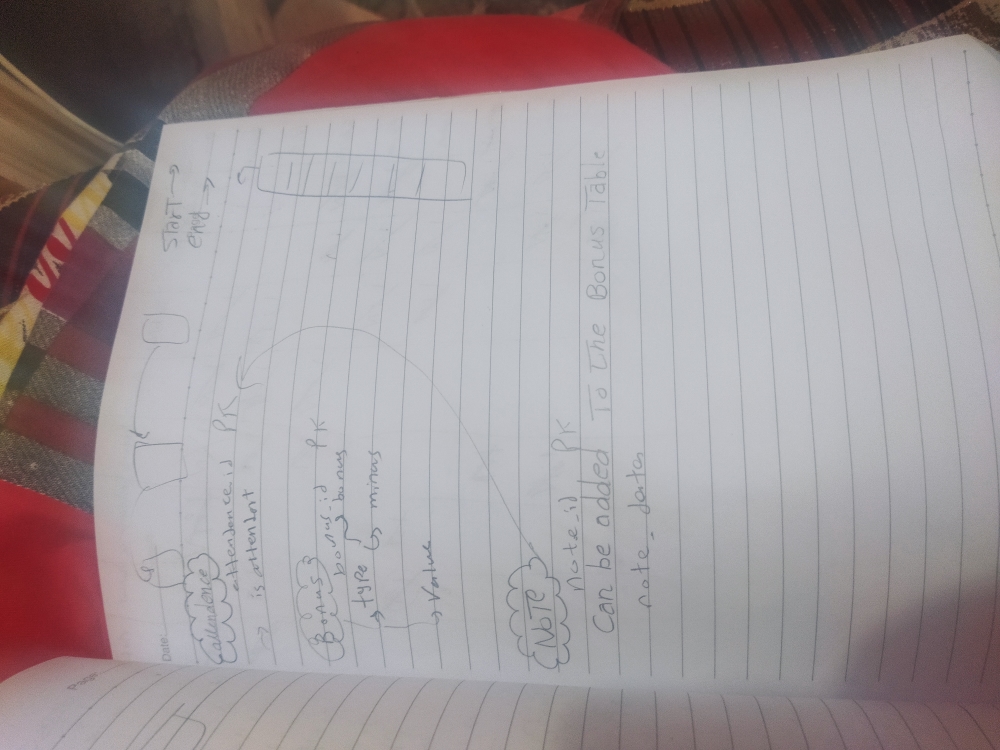 Page
Date
Start →
end →
attendence
attendence_id PK
→ is attendent
Bonus
bonus_id PK
→ type → bonus
→ minus
→ value
NOTE
note_id PK
Can be added To The Bonus Table
note_data